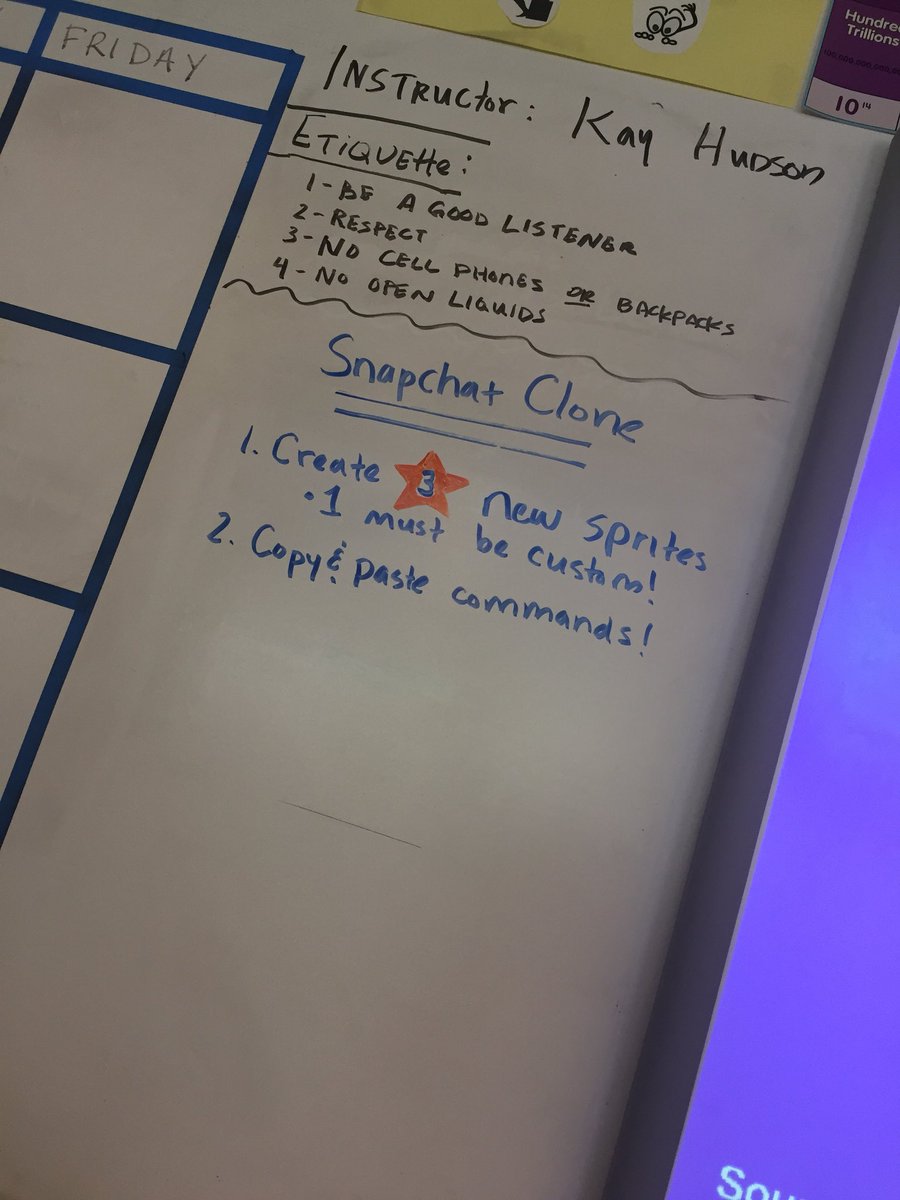 FRIDAY
Hundre
Trillions
10¹⁴
INSTRUCTOR: Kay Hudson
ETIQUETTE:
1-BE A GOOD LISTENER
2-RESPECT
3-NO CELL PHONES OR BACKPACKS
4-NO OPEN LIQUIDS
Snapchat Clone
1. Create 3 new sprites
• 1 must be custom!
2. Copy & paste commands!
Sou